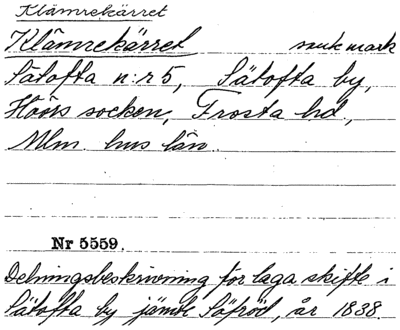 Klämrekärret
Klämrekärret sank mark
Sätofta n:r 5, Sätofta by,
Höörs socken, Frosta hd.,
Mlm. hus län.
Nr 5559.
Delningsbeskrivning för laga skifte i
Sätofta by jämte Säfröd, år 1838.